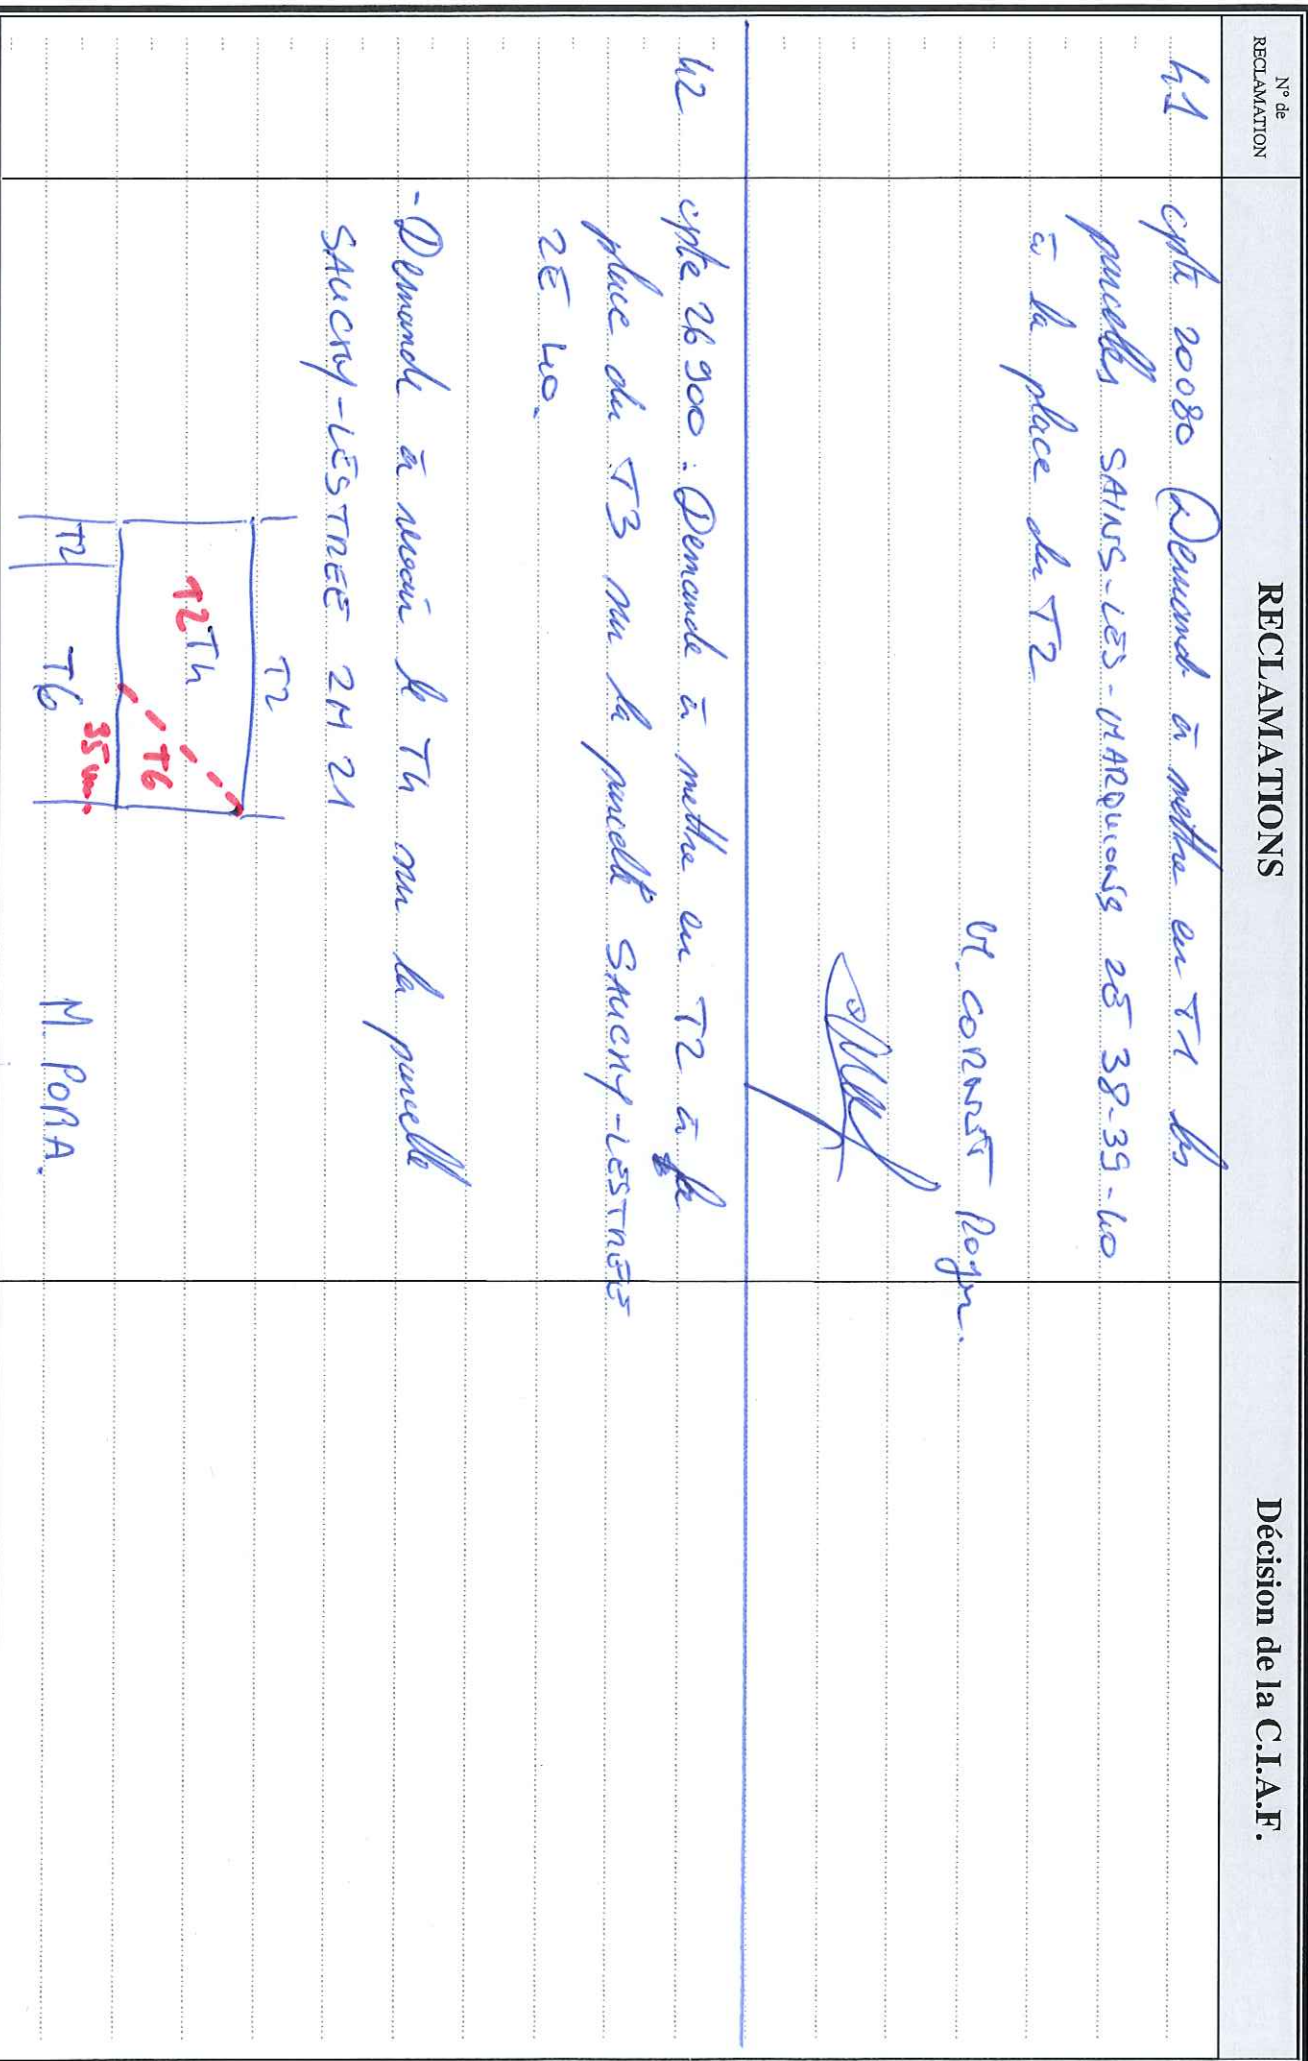 N° de
RECLAMATION
RECLAMATIONS
Décision de la C.I.A.F.
41 cpte 20080 Demande à mettre en T1 les
parcelles SAINS-LES-MARQUIONS ZE 38-39-40
à la place du T2
M. CORNET Roger.
42 cpte 26900. Demande à mettre en T2 à la
place du T3 sur la parcelle SAUCHY-LESTREE
ZE 40.
- Demande à revoir le T4 sur la parcelle
SAUCHY-LESTREE ZH 21
T2
T2 T4
T6
35m.
T2 T6
M. PORA.